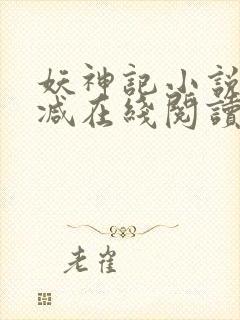 妖神記小說
減在綫閱讀
老雀